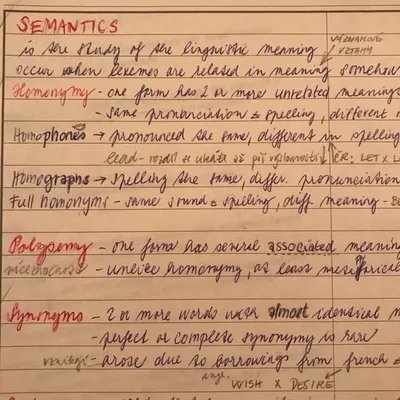 SEMANTICS
is the study of the linguistic meaning
VÝZNAMOVÉ
VZTAHY
occur when lexemes are related in meaning somehow
Homonymy - one form has 2 or more unrelated meanings
- same pronunciation & spelling, different
Homophones → pronounced the same, different in spelling
lead - rozdíl se ukáže až při ČR: LET x
Homographs → spelling the same, differ. pronunciation
Full homonyms - same sound & spelling, diff meaning -
Polysemy - one form has several associated meaning
- unlike homonymy, at least
Synonyms - 2 or more words with almost identical
- perfect or complete synonymy is rare
vznikají - arose due to borrowings from french
ange. WISH x DESIRE